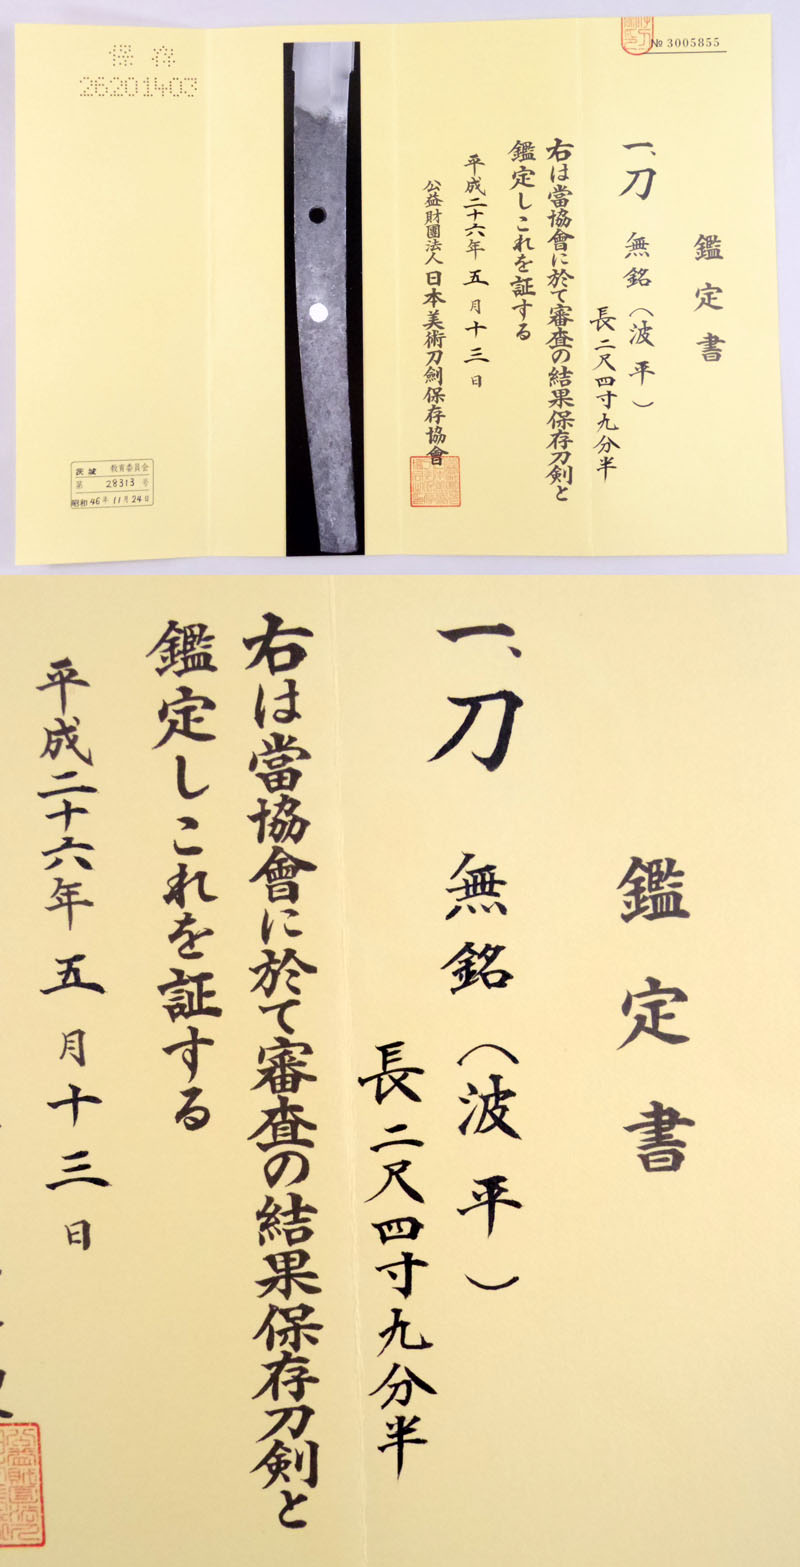 № 3005855
鑑定書
一、刀 無銘(波平)
長二尺四寸九分半
右は當協會に於て審査の結果保存刀剣と
鑑定しこれを証する
平成二十六年五月十三日
公益財團法人日本美術刀劍保存協會
保存
26201403
茨城 教育委員会
第 28313 号
昭和46年11月24日
鑑定書
一、刀 無銘(波平)
長二尺四寸九分半
右は當協會に於て審査の結果保存刀剣と
鑑定しこれを証する
平成二十六年五月十三日